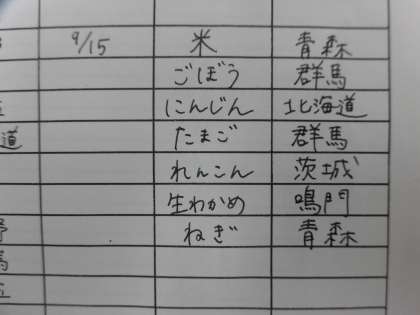 9/15 米 青森
ごぼう 群馬
にんじん 北海道
道 たまご 群馬
れんこん 茨城
生わかめ 鳴門
ねぎ 青森